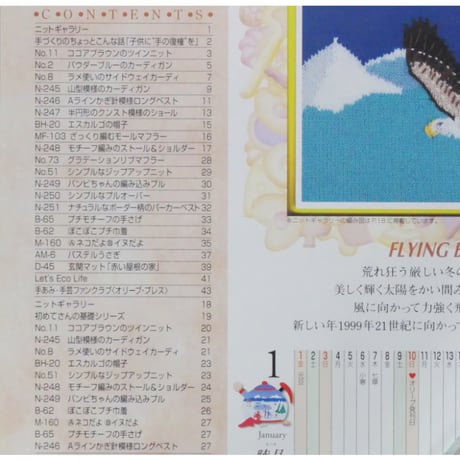 CONTENTS
ニットギャラリー 1
手づくりのちょっとこんな話「子供に"手の復権"を」 2
No.11 ココアブラウンのツインニット 3
No.2 パウダーブルーのカーディガン 5
No.8 ラメ使いのサイドウェイカーディ 7
N-245 山型模様のカーディガン 9
N-246 Aラインかぎ針模様ロングベスト 11
N-247 半円形のクンスト模様のショール 13
BH-20 エスカルゴの帽子 15
MF-103 ざっくり編むモールマフラー 16
N-248 モチーフ編みのストール&ショルダー 17
No.73 グラデーションリブマフラー 28
No.51 シンプルなジップアップニット 29
N-249 バンビちゃんの編み込みプル 30
N-250 シンプルなプルオーバー 31
N-251 ナチュラルなボーダー柄のパーカーベスト 32
B-65 プチモチーフの手さげ 33
B-62 ぽこぽこプチ巾着 34
M-160 ネコだよ イヌだよ 35
AM-6 パステルうさぎ 37
D-45 玄関マット「赤い屋根の家」 39
Let's Eco Life 41
手あみ・手芸ファンクラブ(オリーブ・プレス) 43
ニットギャラリー 18
初めてさんの基礎シリーズ 19
No.11 ココアブラウンのツインニット 20
N-245 山型模様のカーディガン 21
No.8 ラメ使いのサイドウェイカーディ 21
BH-20 エスカルゴの帽子 22
No.51 シンプルなジップアップニット 23
N-248 モチーフ編みのストール&ショルダー 24
N-249 バンビちゃんの編み込みプル 25
B-62 ぽこぽこプチ巾着 26
M-160 ネコだよ イヌだよ 27
B-65 プチモチーフの手さげ 27
N-246 Aラインかぎ針模様ロングベスト 27
※ニットギャラリーの編み図はP.18に掲載しています。
FLYING E
荒れ狂う厳しい冬の
美しく輝く太陽をかい間み
風に向かって力強く飛
新しい年1999年21世紀に向かって
1
January
1 金 元旦
2 土
3 日
4 月
5 火
6 水 小寒
7 木 七草
8 金
9 土
10 日 オリーブ発刊日
11
12
13
14